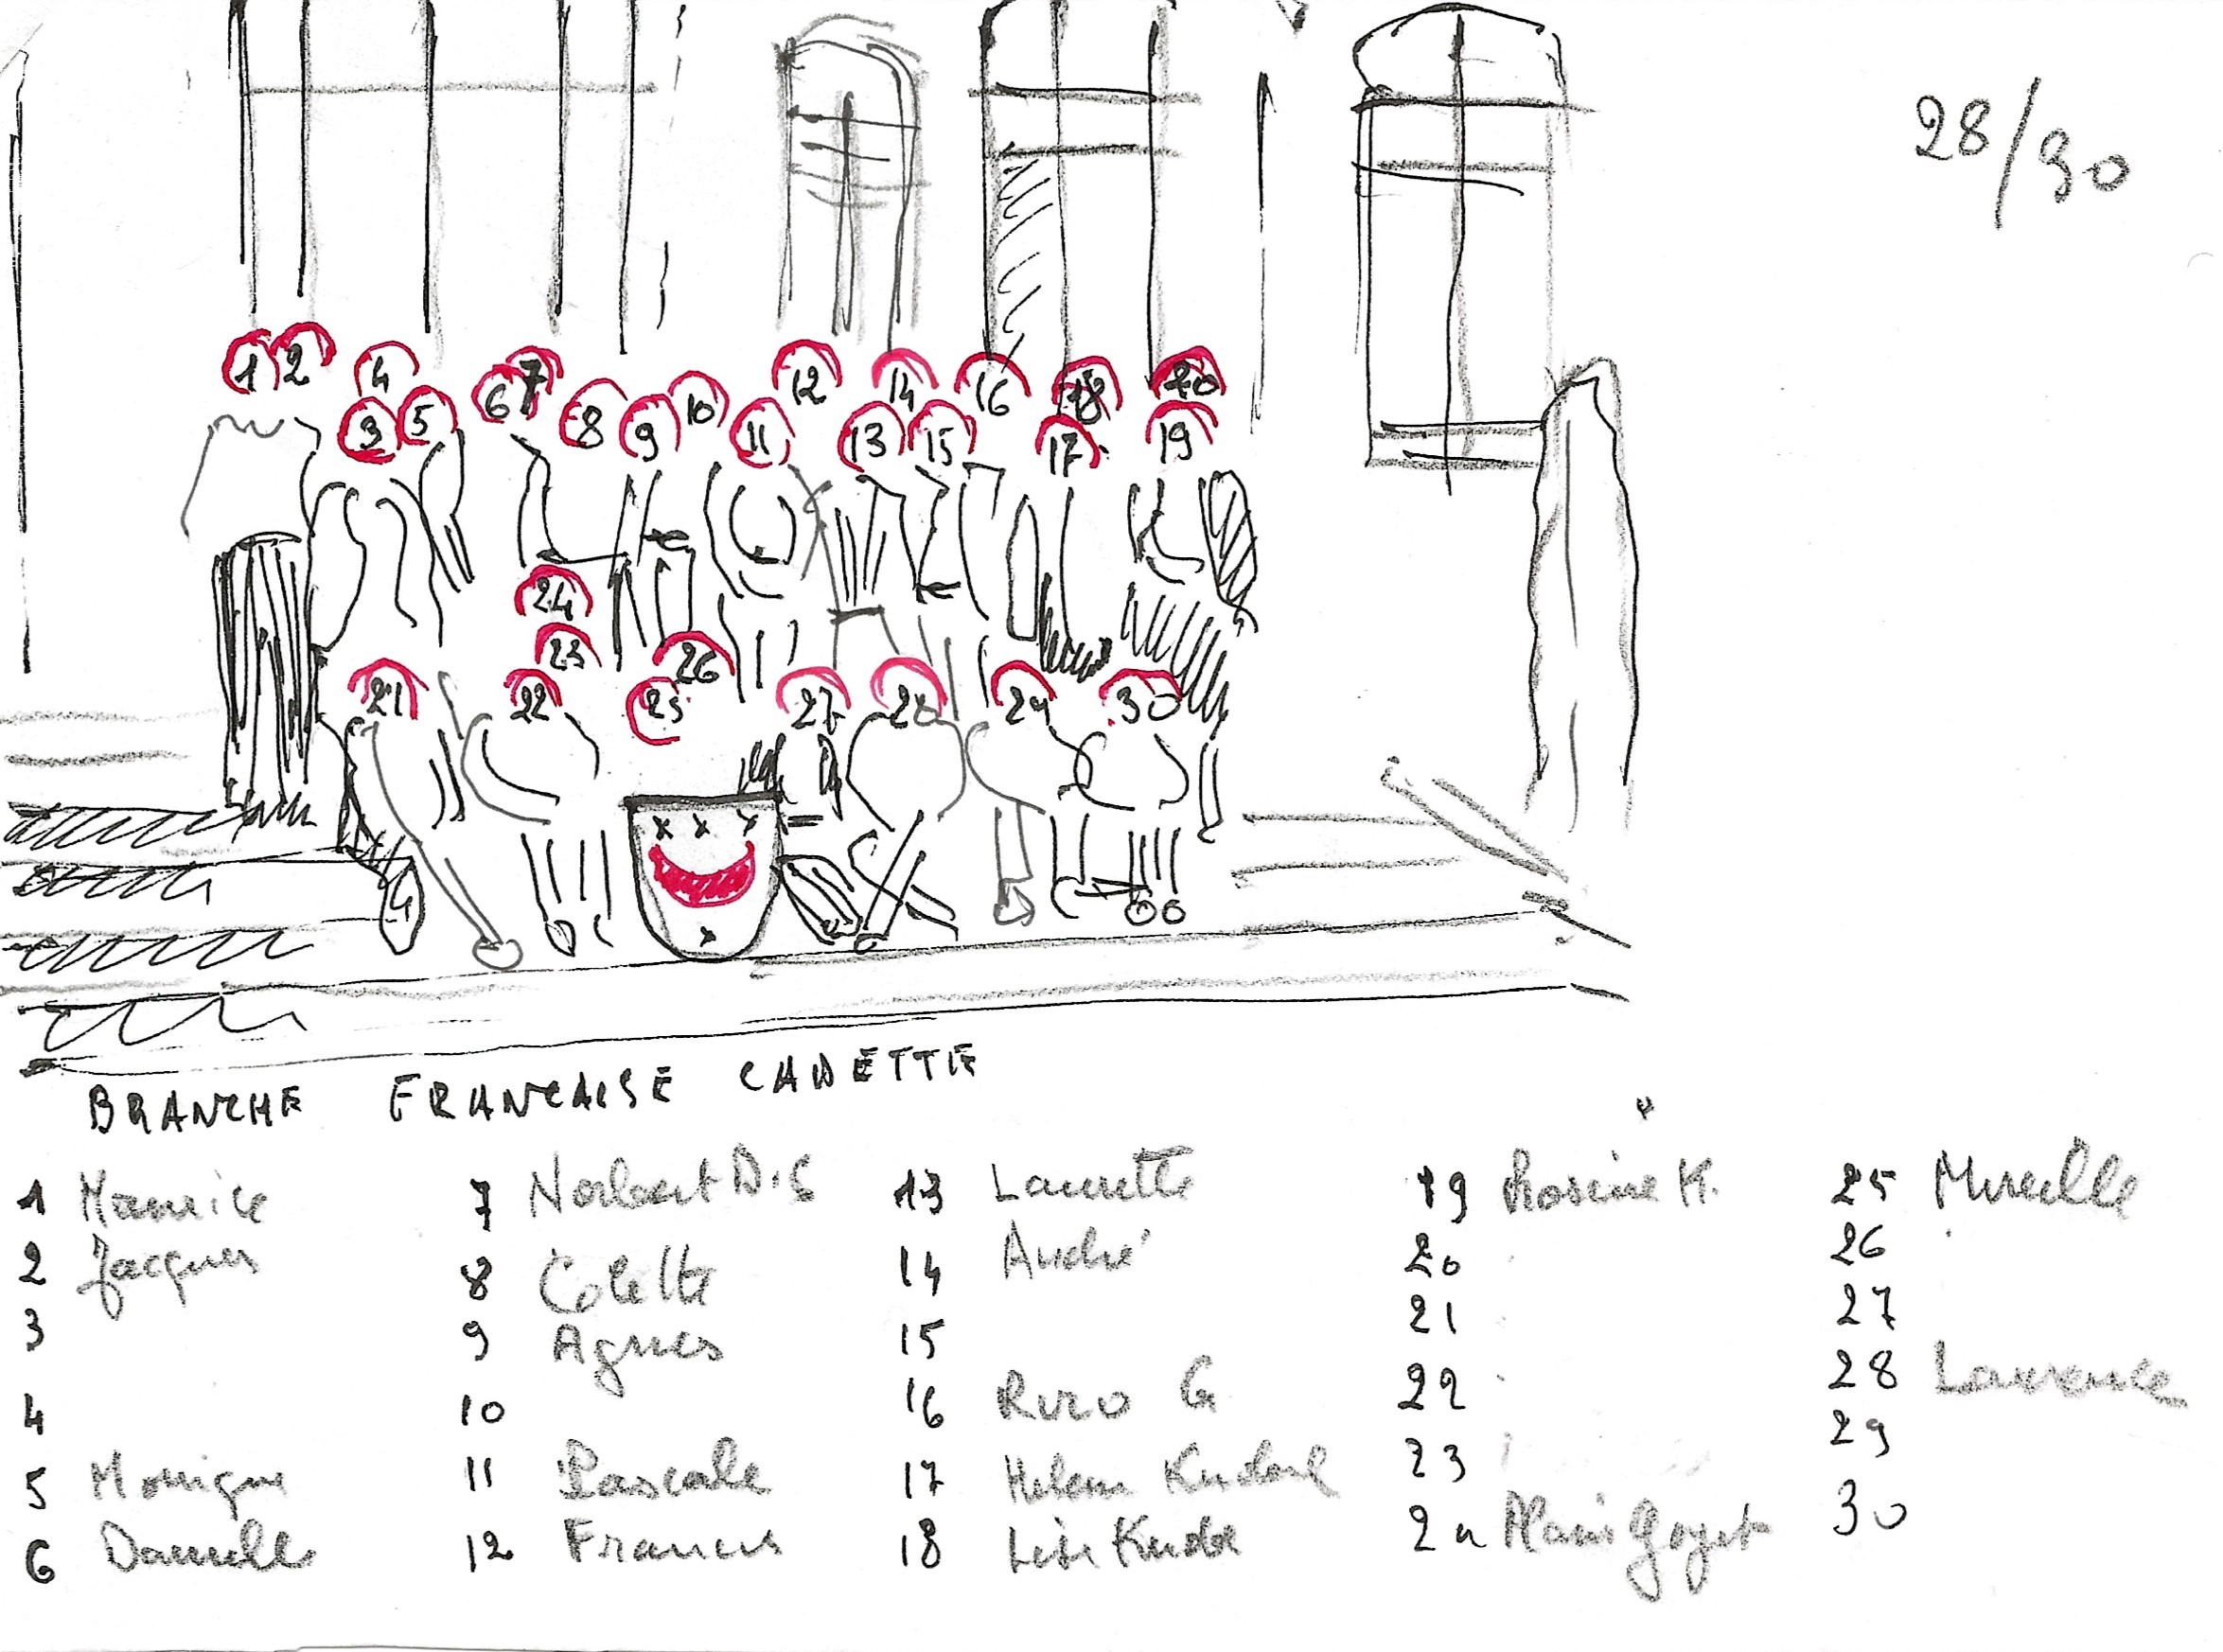 28/30
1 2 4 6 7 8 10 12 14 16 18 20
3 5 9 11 13 15 17 19
24
23 26
21 22 25 27 28 29 30
BRANCHE FRANCAISE CADETTE
1 Maurice 7 Norbert D.S 13 Laurette 19 Rosine K. 25 Mireille
2 Jacques 8 Colette 14 André 20 26
3 9 Agnes 15 21 27
4 10 16 G 22 28 Laurence
5 Monique 11 Pascale 17 Helene 23 29
6 Danielle 12 Francis 18 24 30